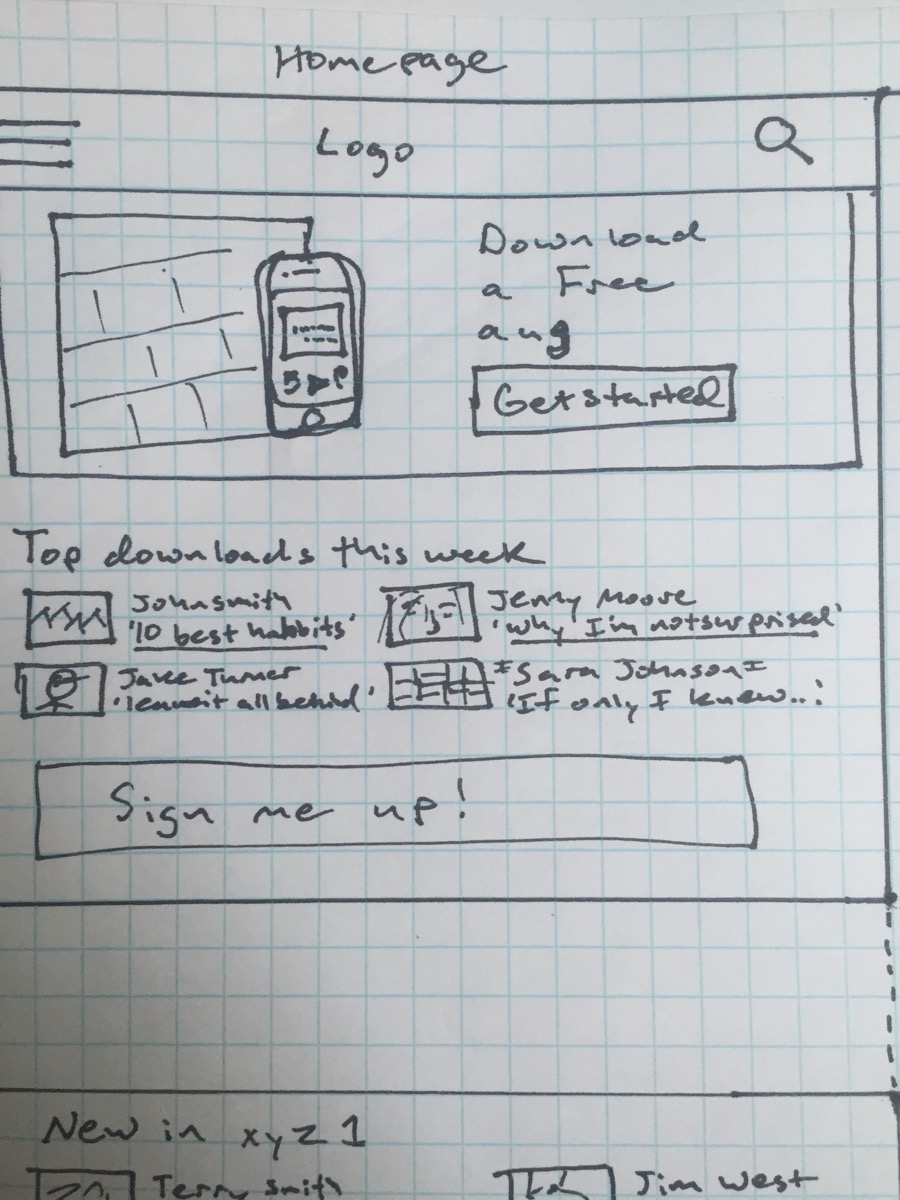 Homepage
Logo
Download
a Free
aug
Get started
Top downloads this week
John smith
'10 best habbits'
Jenny Moore
'why I'm not surprised'
Jake Turner
'leave it all behind'
Sara Johnson
'If only I knew..'
Sign me up!
New in xyz 1
Terry Smith
Jim west